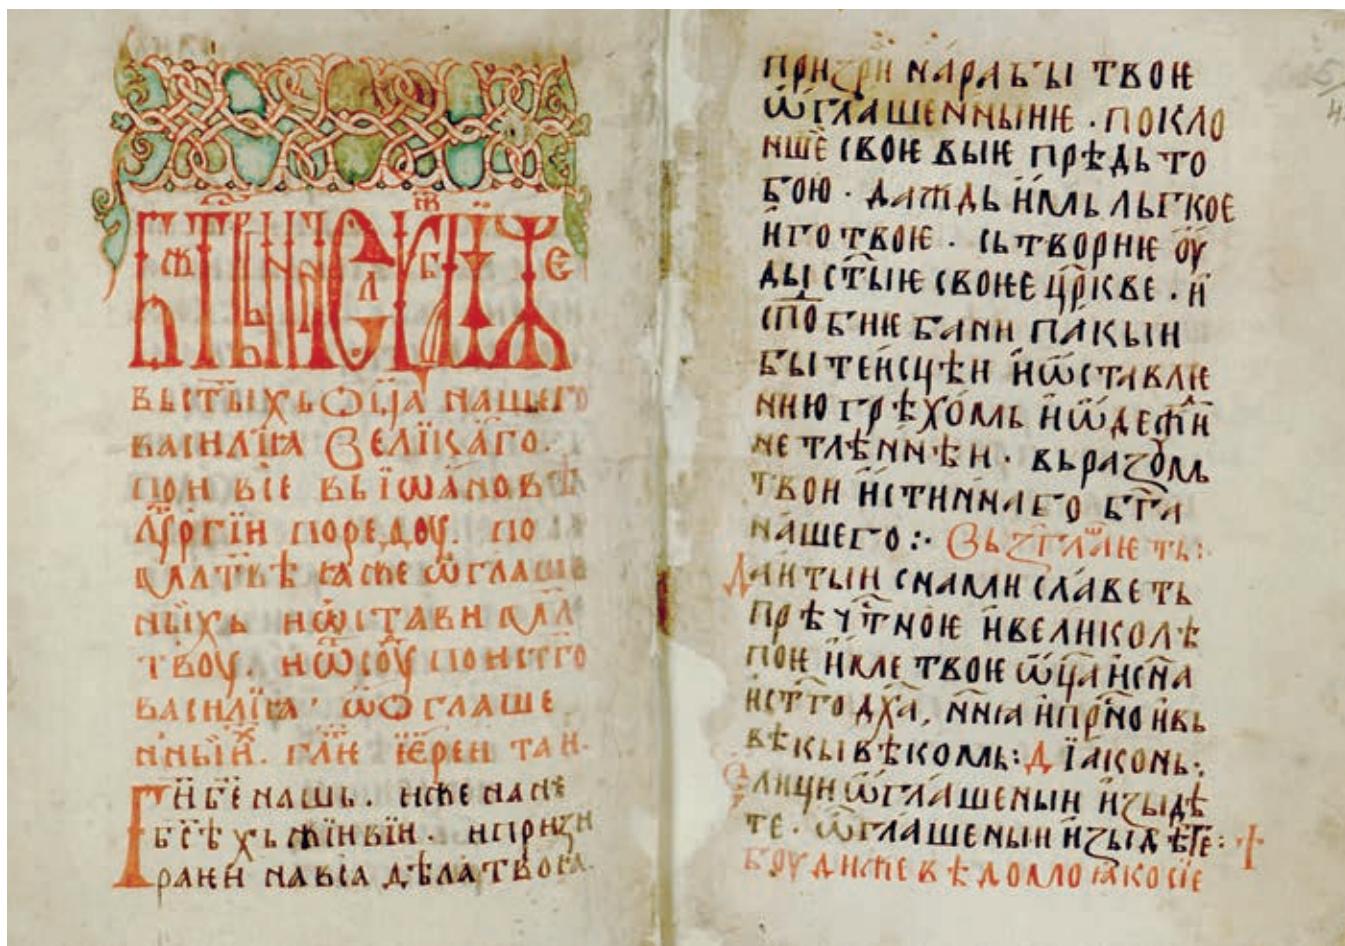 вьст҃ыхь ѡц҃а нашего
василїꙗ велїкаго.
поѥи все вь їѡановѣ
лѵ҃ргїи поредоу. по
мл҃твѣ ꙗже ѡ҃глаше
ны́хь иѡ҆стави мл҃
твоу. иѿсоу҃ поист҃го
василїꙗ· ѡ҃глаше
нныи҆х. гл҃и їерен таи.
Ги҃ бж҃е нашь. иже на нб҃
сѣхь живїи. и призи
раѥи на всꙗ дѣла твоꙗ.
призри на рабы твоѥ
ѡ҃глашенныиѥ. покло
ншеѐ своѥ выѥ прѣдь то
бою. даждь и҆мь льгкоѥ
и҆го твоѥ. сьтвориѥ оу҆
ды ст҃ыѥ своѥе цр҃кве. и҆
спо҃биѥ бани пакыи
бытеи҆сцѣи и҆ѡ҃ставлѥ
нию грѣхомь и҆ѡ҃дежи҆
нетлѣннѣи. вь разѹмь
твои и҆стиннаго бг҃а
на́шего: Вьзгл҃аѥть:
Да и тыи снами сла́веть
прѣчт҃ноѥ и҆великолѣ
поѥ и҆ме твоѥ ѡ҃ц҃а и҆сн҃а
и҆ст҃го дх҃а, нн҃ꙗ и҆пр҃но и҆вь
вѣкы вѣкомь: Дїаконь:
Елици ѡ҃гла́шеныи и҆зыдѣ
те. ѡ҃глашеныи и҆зыдѣте:
боуди же вѣдомо ꙗко сїе